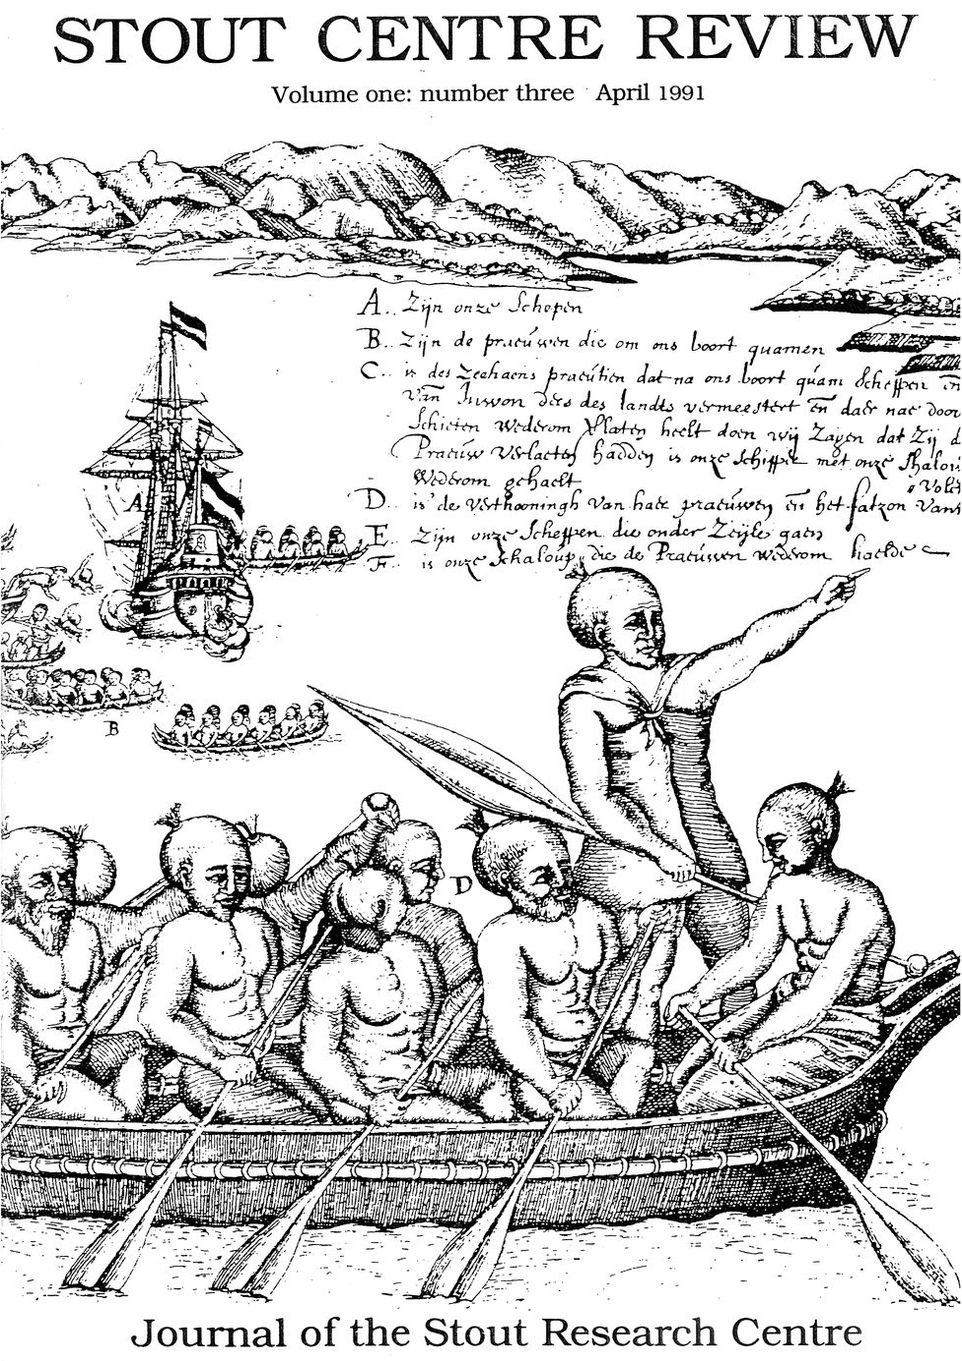 STOUT CENTRE REVIEW
Volume one: number three April 1991
A.. Zijn onze Schepen
B.. Zijn de praeuwen die om ons boort quamen
C.. is des Zeehaens praeutien dat na ons boort quam Scheppen en
Van Inwon ders des landts vermeestert en daer nae door
Schieten Wederom Verlaten heelt doen wij Zagen dat Zij d
Praeuw Verlaeten hadden is onze Schipper met onze Shalou
Wederom gehaelt
D.. is de Verthooningh Van haer praeuwen en het fatzon Vant
Volck
E.. Zijn onze Scheppen die onder Zeijle gaen
F.. is onze Schaloup die de Praeuwen Wederom haelde
A
B
D
Journal of the Stout Research Centre